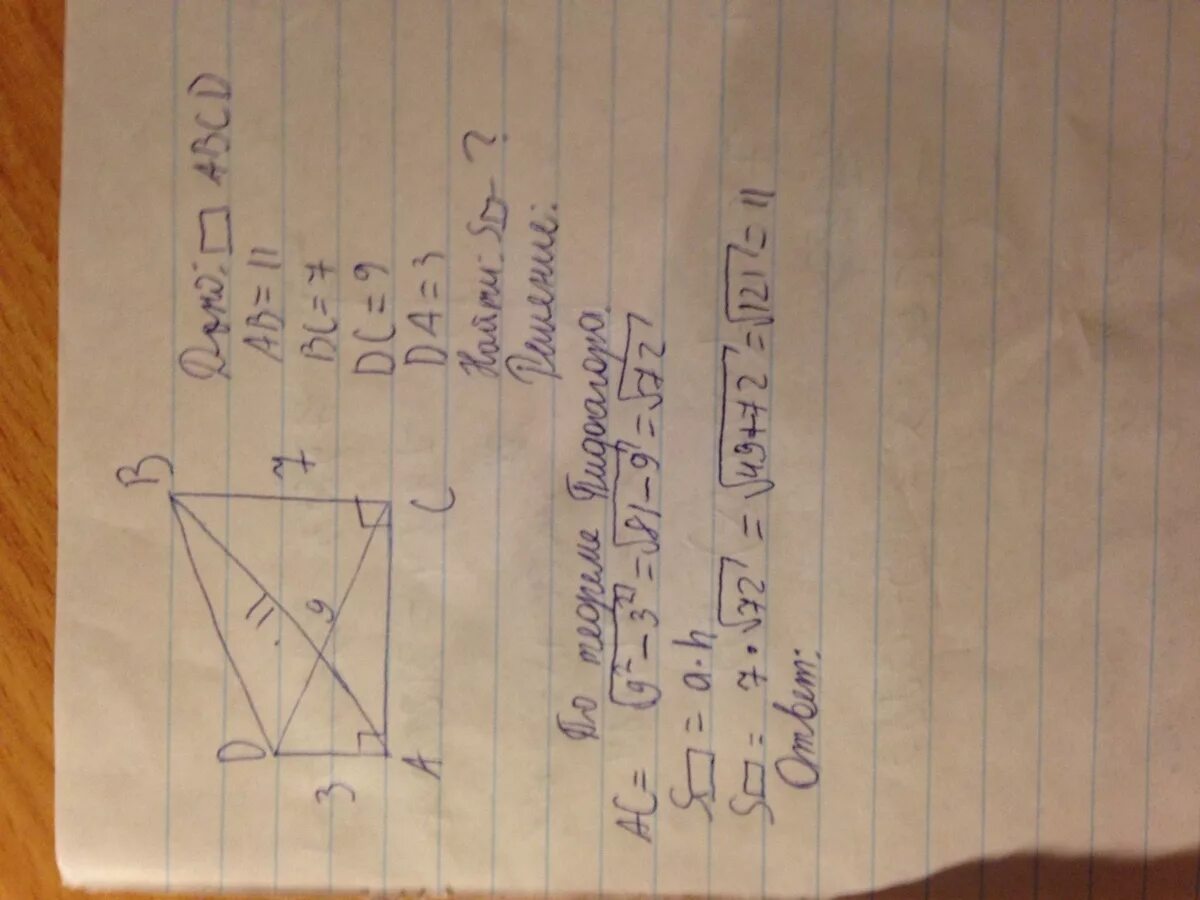 B
D
7
11
9
3
A
C
Дано: □ ABCD
AB = 11
BC = 7
DC = 9
DA = 3
Найти: S□ - ?
Решение:
По теореме Пифагора
AC = √9² - 3² = √81 - 9 = √72
S□ = a · h
S□ = 7 · √72 = √49+72 = √121 = 11
Ответ: